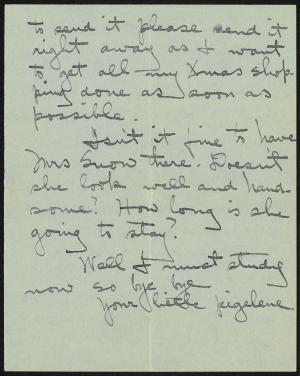 to send it please send it
right away as I want
to get all my Xmas shop-
ping done as soon as
possible.
Isn't it fine to have
Mrs Snow there. Doesn't
she look well and hand-
some? How long is she
going to stay?
Well I must study
now so bye bye
your little